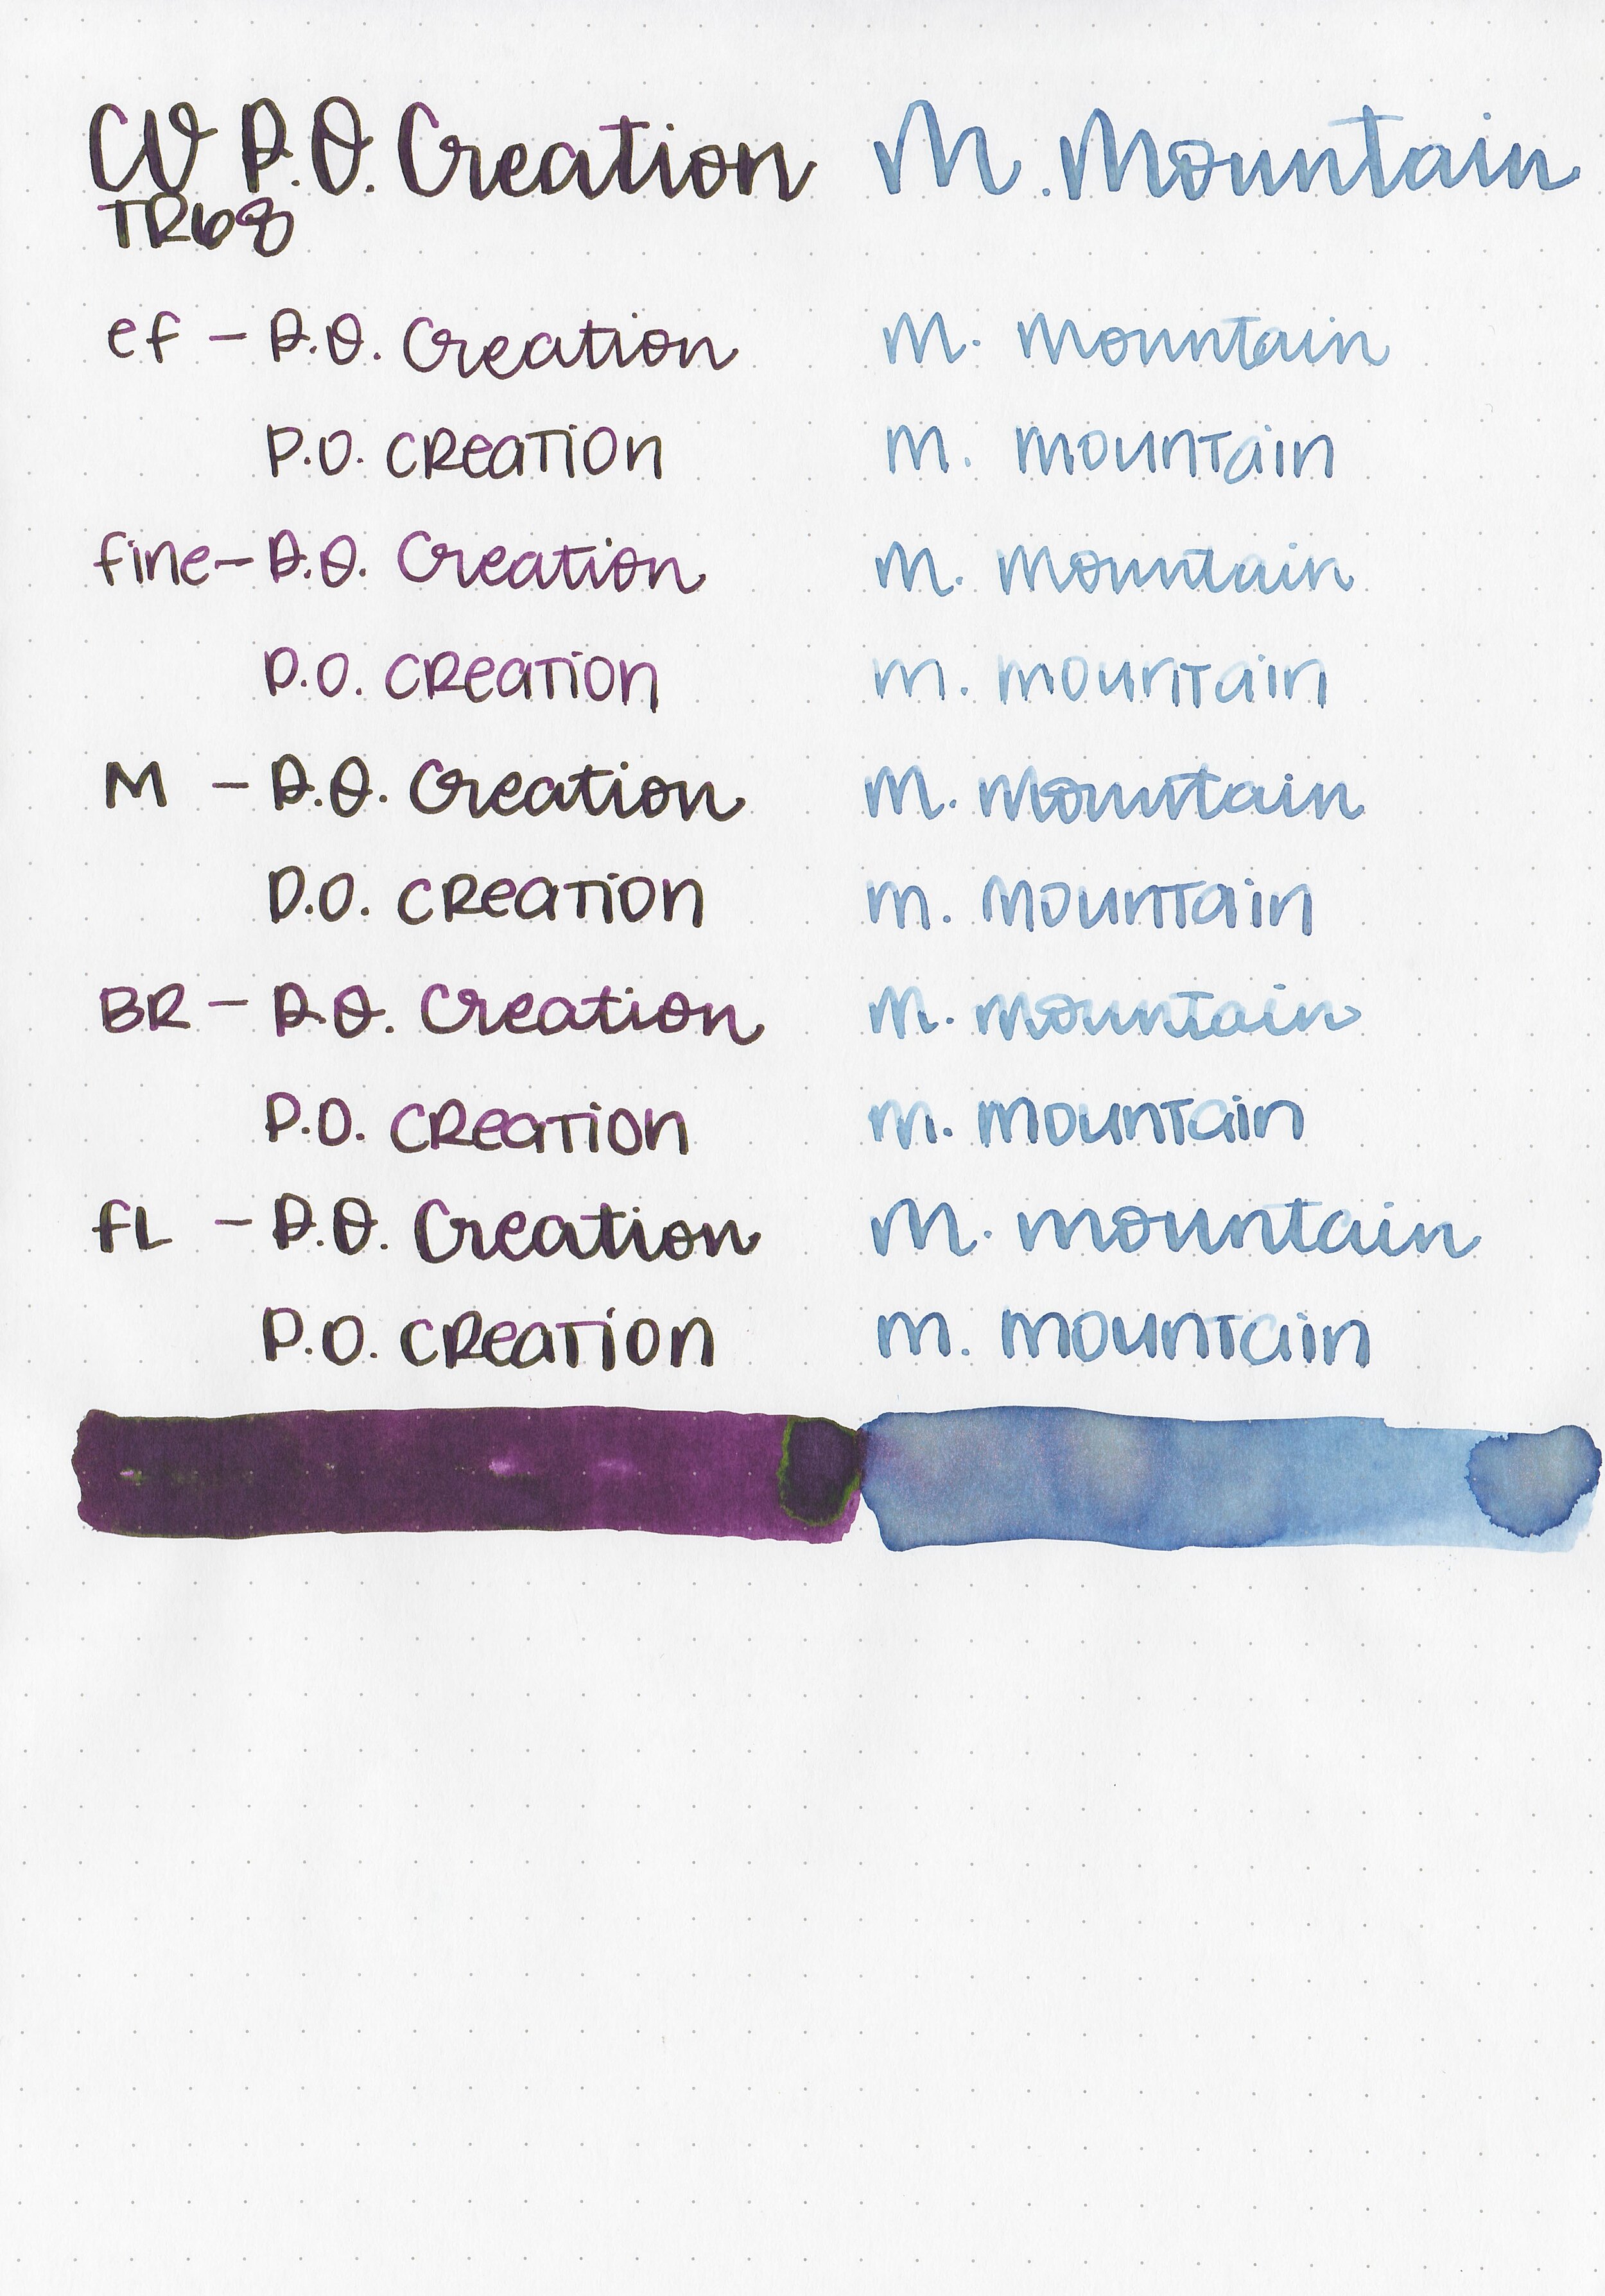 CV P.O. Creation M. Mountain
TR68
ef - P.O. Creation M. Mountain
P.O. CREATION M. MOUNTAIN
fine - P.O. Creation M. Mountain
P.O. CREATION M. MOUNTAIN
M - P.O. Creation M. Mountain
P.O. CREATION M. MOUNTAIN
BR - P.O. Creation M. Mountain
P.O. CREATION M. MOUNTAIN
fL - P.O. Creation M. Mountain
P.O. CREATION M. MOUNTAIN